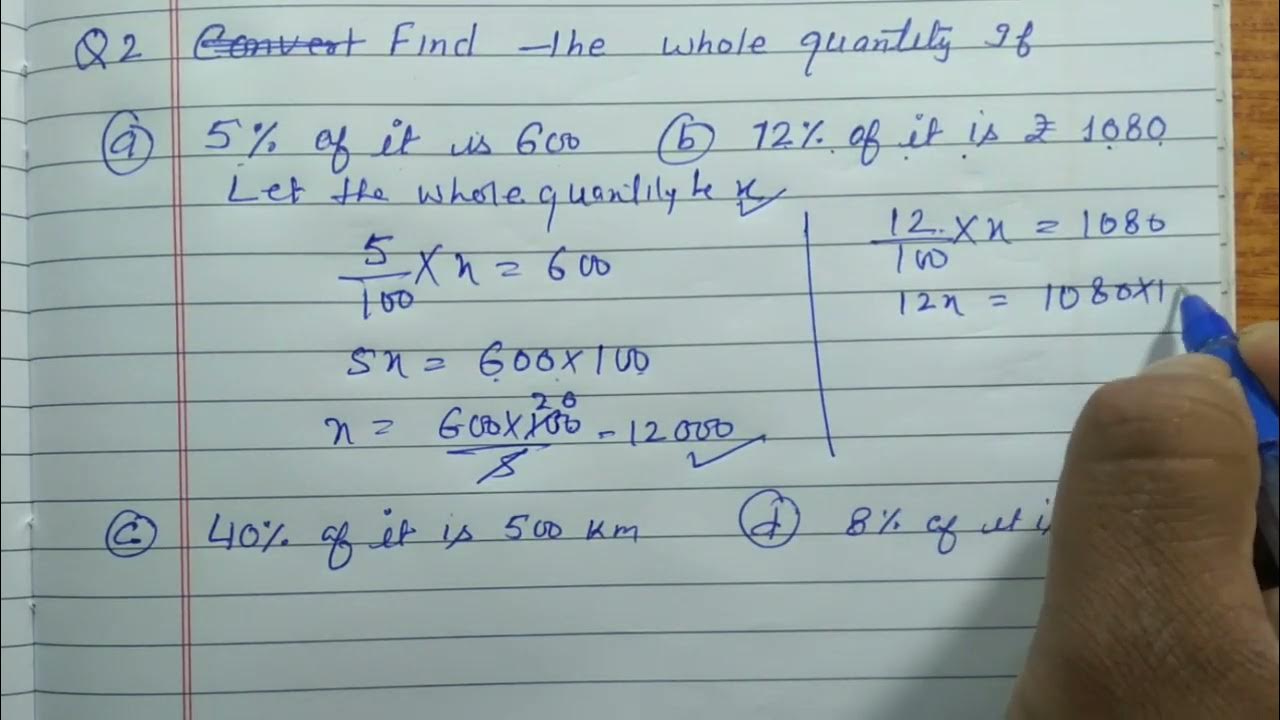 Q2 Convert Find the whole quantity If
(a) 5% of it is 600 (b) 12% of it is ₹ 1080
Let the whole quantity be x
5/100 × x = 600
5x = 600×100
x = 600×100/5 = 12000
20
12/100 × x = 1080
12x = 1080×1
(c) 40% of it is 500 km (d) 8% of it i